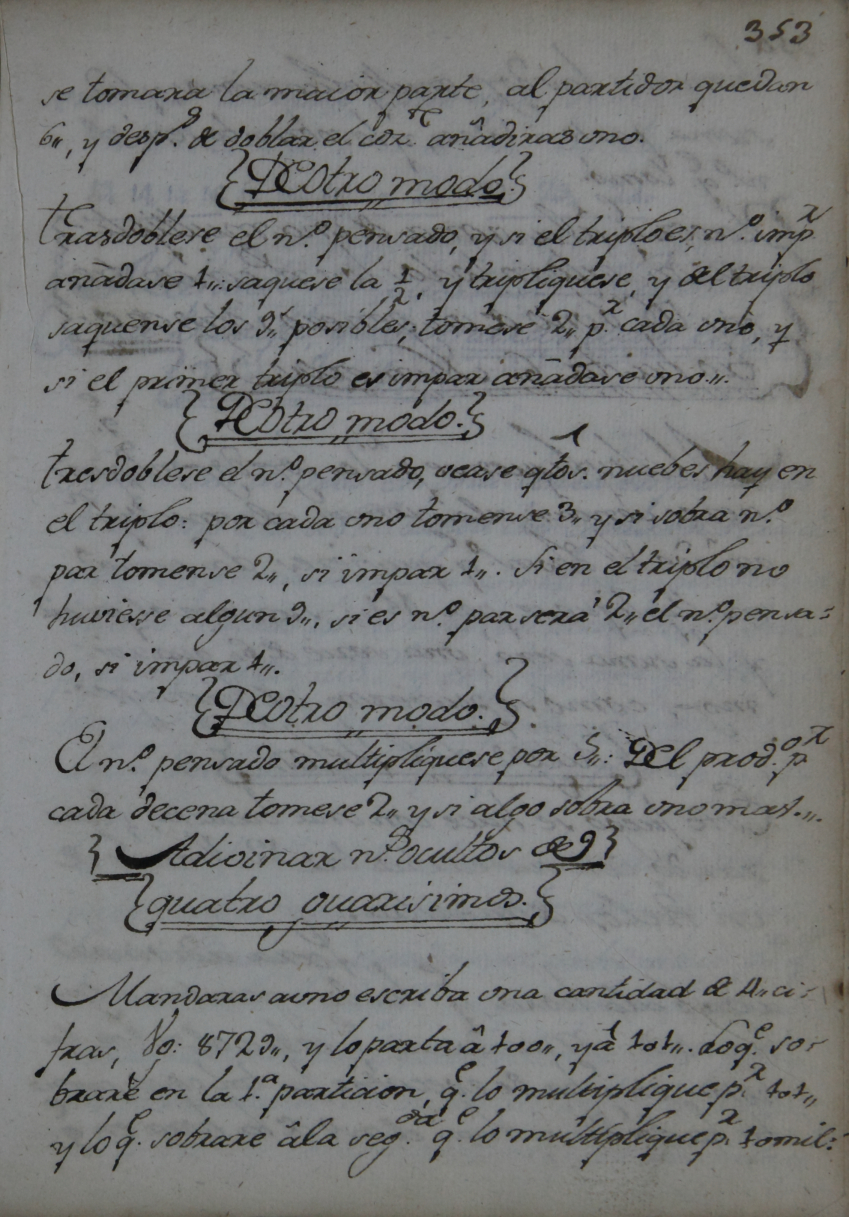 353
se tomara la maior parte, al partidor quedan
6,, y desp.s de doblar el cor.te añadiras uno.
{DEotro modo.}
trasdoblese el n.o pensado, y si el triplo es, n.o imp.r
añadase 1,,: saquese la 1/2, y tripliquese, y del triplo
saquense los 9,, posibles; tomese 2,, p.r cada uno, y
si el primer triplo es impar añadase uno,,.
{DEotro modo.}
tresdoblese el n.o pensado, vease qtôs. nuebes hay en
el triplo: por cada uno tomense 3,, y si sobra n.o
par tomense 2,,, si impar 1,,. Si en el triplo no
huviesse algun 9,,, si es n.o par será 2,, el n.o pensa=
do, si impar 1,,.
{DEotro modo.}
El n.o pensado multipliquese por 5,,: DEl prod.o p.r
cada decena tomese 2,, y si algo sobra uno mas.,,.
{Adivinar n.os ocultos de
quatro guarisimos.}
Mandaras a uno escriba una cantidad de 4,, ci-
fras, Vg: 8729,, y lo parta â 100,, y â 101,,. Lo q.e so-
brare en la 1.a particion, q.e lo multiplique p.r 101,,
y lo q.e sobrare â la seg.da q.e lo multiplique p.r 10mil: